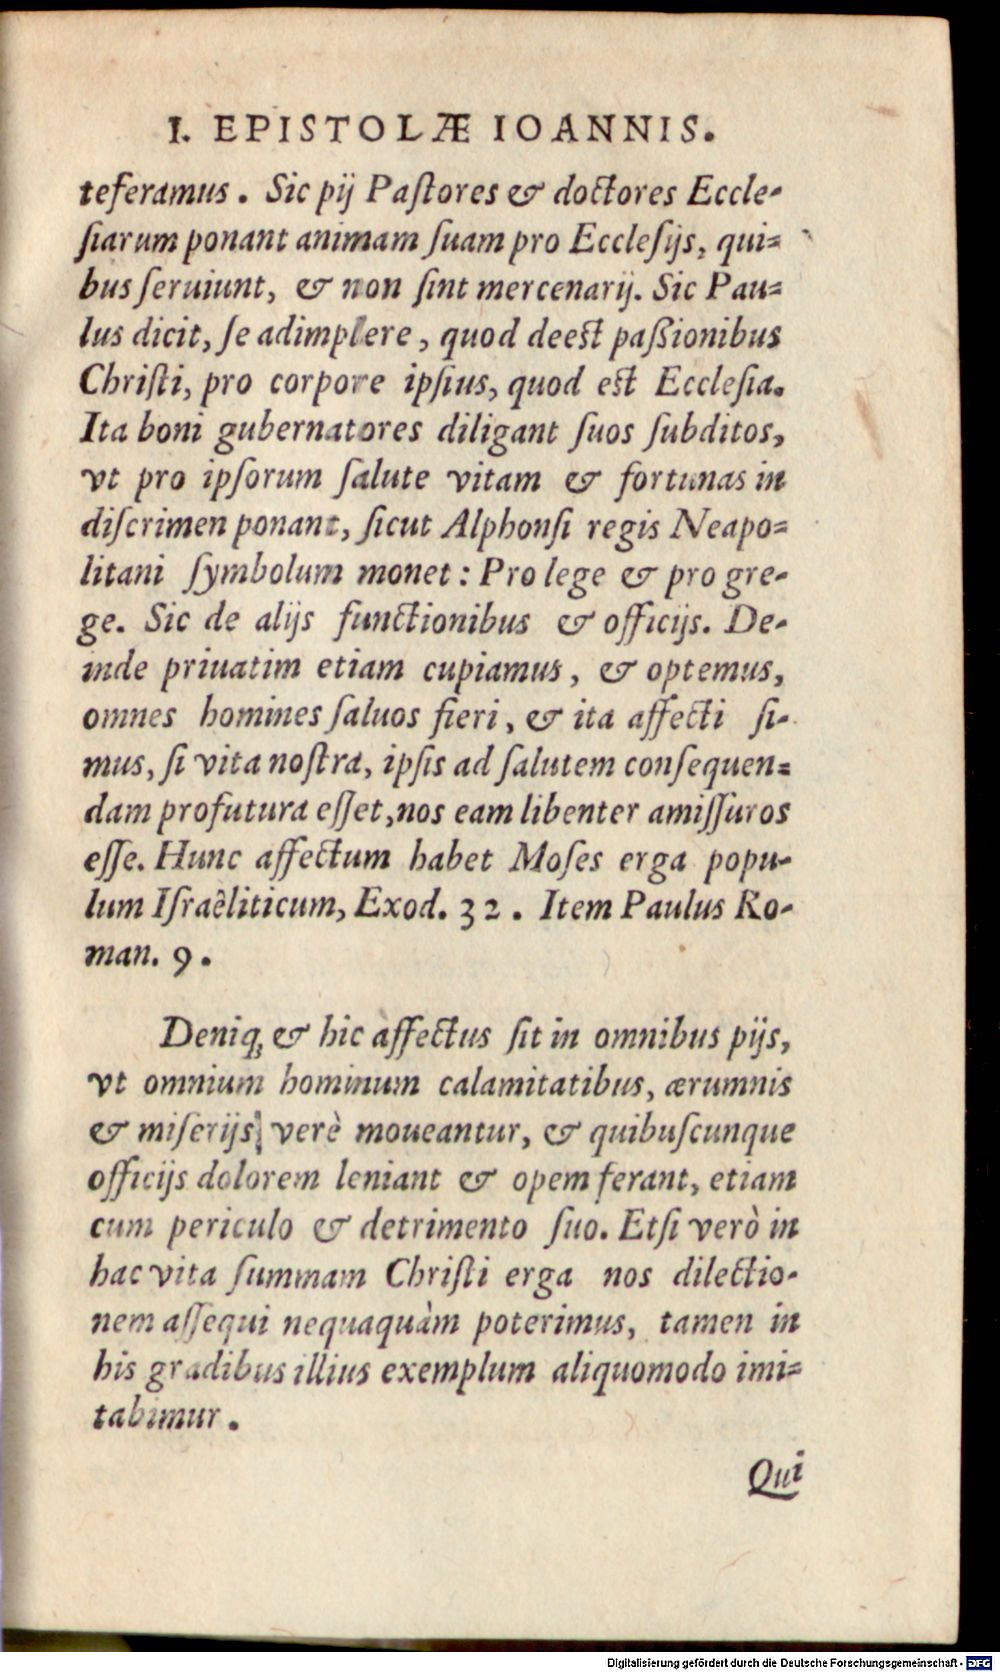 I. EPISTOLÆ IOANNIS.
teferamus. Sic pij Paſtores & doctores Eccle-
ſiarum ponant animam ſuam pro Eccleſijs, qui-
bus ſeruiunt, & non ſint mercenarij. Sic Pau-
lus dicit, ſe adimplere, quod deest paßionibus
Chriſti, pro corpore ipſius, quod est Eccleſia.
Ita boni gubernatores diligant ſuos ſubditos,
vt pro ipſorum ſalute vitam & fortunas in
diſcrimen ponant, ſicut Alphonſi regis Neapo-
litani ſymbolum monet: Pro lege & pro gre-
ge. Sic de alijs functionibus & officijs. De-
inde priuatim etiam cupiamus, & optemus,
omnes homines ſaluos fieri, & ita affecti ſi-
mus, ſi vita noſtra, ipſis ad ſalutem conſequen-
dam profutura eſſet, nos eam libenter amiſſuros
eſſe. Hunc affectum habet Moſes erga popu-
lum Iſraêliticum, Exod. 32. Item Paulus Ro-
man. 9.
Deniq; & hic affectus ſit in omnibus pijs,
vt omnium hominum calamitatibus, ærumnis
& miſerijs, verè moueantur, & quibuſcunque
officijs dolorem leniant & opem ferant, etiam
cum periculo & detrimento ſuo. Etſi verò in
hac vita ſummam Chriſti erga nos dilectio-
nem aſſequi nequaquàm poterimus, tamen in
his gradibus illius exemplum aliquomodo imi-
tabimur.
Qui
Digitalisierung gefördert durch die Deutsche Forschungsgemeinschaft - DFG